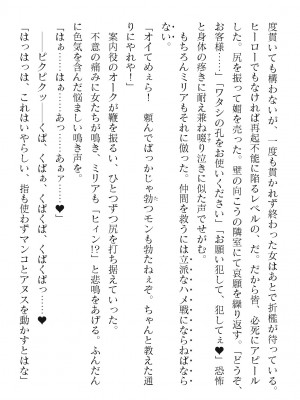 度貫いても構わないが、一度も貫かれず終わった女はあとで折檻が待っている。
ヒーローでもなければ再起不能に陥るレベルの、だ。だから皆、必死にアピール
した。尻を振って媚を売った。壁の向こうの隣室にて哀願を繰り返す。「どうぞ、
お客様…」「ワタシの孔をお使いください」「お願い犯して、犯してぇ♥」恐怖
と身体の疼きに耐え兼ね啜り泣きに似た声でせがむ。
もちろんミリアもそれに倣った。仲間を救うには立派なハメ戦にならねばならない。
「オイてめぇら！　頼んでばっかじゃ勃つモンも勃たねぇぞ。ちゃんと教えた通
りにやれや！」
案内役のオークが鞭を振るい、ひとつずつ尻を打ち据えていった。
不意の痛みに女たちが鳴き、ミリアも「ヒィン!?」と悲鳴をあげる。ふんだん
に色気を含んだ悩ましい鳴き声を。
「はぁ……はぁ……あっ……あぁァ……♥」
――ピクピクッ……くぱ、くぱぁ、くぱくぱ、くぱくぱっ……♥
「はっはっは、これはいやらしい、指も使わずマンコとアヌスを動かすとはな」